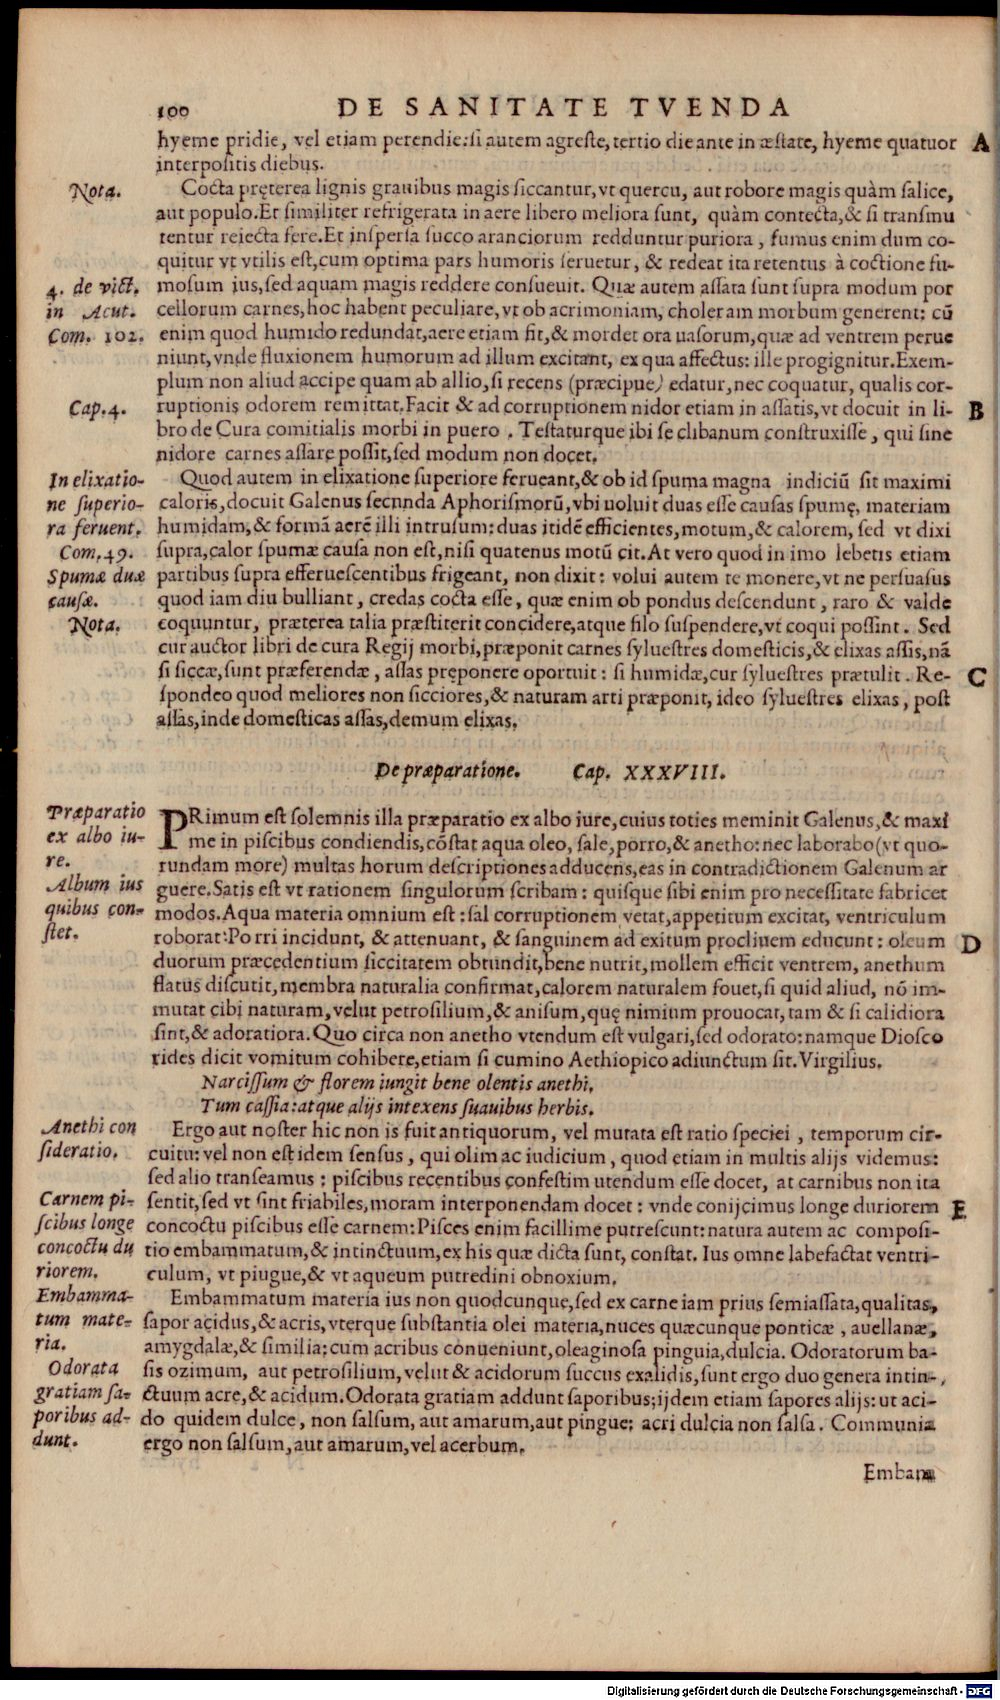 100 DE SANITATE TVENDA
hyeme pridie, vel etiam perendie: si autem agreste, tertio die ante in æstate, hyeme quatuor A
interpositis diebus.
Nota. Cocta pręterea lignis grauibus magis siccantur, vt quercu, aut robore magis quàm salice,
aut populo. Et similiter refrigerata in aere libero meliora sunt, quàm contecta, & si transmu
tentur reiecta fere. Et inspersa succo aranciorum redduntur puriora, fumus enim dum co-
quitur vt vtilis est, cum optima pars humoris seruetur, & redeat ita retentus à coctione fu-
4. de vict. mosum ius, sed aquam magis reddere consueuit. Quæ autem assata sunt supra modum por
in Acut. cellorum carnes, hoc habent peculiare, vt ob acrimoniam, choleram morbum generent: cũ
Com. 102. enim quod humido redundat, aere etiam fit, & mordet ora uasorum, quæ ad ventrem perue
niunt, vnde fluxionem humorum ad illum excitant, ex qua affectus: ille progignitur. Exem-
plum non aliud accipe quam ab allio, si recens (præcipue) edatur, nec coquatur, qualis cor-
Cap. 4. ruptionis odorem remittat. Facit & ad corruptionem nidor etiam in assatis, vt docuit in li- B
bro de Cura comitialis morbi in puero. Testaturque ibi se clibanum construxisse, qui sine
nidore carnes assare possit, sed modum non docet.
In elixatio- Quod autem in elixatione superiore ferueant, & ob id spuma magna indiciũ sit maximi
ne superio- caloris, docuit Galenus secnnda Aphorismorũ, vbi uoluit duas esse causas spumę, materiam
ra feruent. humidam, & formã aerẽ illi intrusum: duas itidẽ efficientes, motum, & calorem, sed vt dixi
Com. 49. supra, calor spumæ causa non est, nisi quatenus motũ cit. At vero quod in imo lebetis etiam
Spumæ duæ partibus supra efferuescentibus frigeant, non dixit: volui autem te monere, vt ne persuasus
causæ. quod iam diu bulliant, credas cocta esse, quæ enim ob pondus descendunt, raro & valde
Nota. coquuntur, præterea talia præstiterit concidere, atque filo suspendere, vt coqui possint. Sed
cur auctor libri de cura Regij morbi, præponit carnes syluestres domesticis, & elixas assis, nã
si siccæ, sunt præferendæ, assas pręponere oportuit: si humidæ, cur syluestres prætulit. Re- C
spondeo quod meliores non sicciores, & naturam arti præponit, ideo syluestres elixas, post
assas, inde domesticas assas, demum elixas.
De præparatione. Cap. XXXVIII.
Præparatio PRimum est solemnis illa præparatio ex albo iure, cuius toties meminit Galenus, & maxi
ex albo iu- me in piscibus condiendis, cõstat aqua oleo, sale, porro, & anetho: nec laborabo (vt quo-
re. rundam more) multas horum descriptiones adducens, eas in contradictionem Galenum ar
Album ius guere. Satis est vt rationem singulorum scribam: quisque sibi enim pro necessitate fabricet
quibus con- modos. Aqua materia omnium est: sal corruptionem vetat, appetitum excitat, ventriculum
stet. roborat: Porri incidunt, & attenuant, & sanguinem ad exitum procliuem educunt: oleum D
duorum præcedentium siccitatem obtundit, bene nutrit, mollem efficit ventrem, anethum
flatus discutit, membra naturalia confirmat, calorem naturalem fouet, si quid aliud, nõ im-
mutat cibi naturam, velut petrosilium, & anisum, quę nimium prouocat, tam & si calidiora
sint, & adoratiora. Quo circa non anetho vtendum est vulgari, sed odorato: namque Diosco
rides dicit vomitum cohibere, etiam si cumino Aethiopico adiunctum sit. Virgilius.
Narcissum & florem iungit bene olentis anethi,
Tum cassia: atque alijs intexens suauibus herbis.
Anethi con Ergo aut noster hic non is fuit antiquorum, vel mutata est ratio speciei, temporum cir-
sideratio. cuitu: vel non est idem sensus, qui olim ac iudicium, quod etiam in multis alijs videmus:
sed alio transeamus: piscibus recentibus confestim utendum esse docet, at carnibus non ita
Carnem pi- sentit, sed vt sint friabiles, moram interponendam docet: vnde conijcimus longe duriorem E
scibus longe concoctu piscibus esse carnem: Pisces enim facillime putrescunt: natura autem ac composi-
concoctu du tio embammatum, & intinctuum, ex his quæ dicta sunt, constat. Ius omne labefactat ventri-
riorem. culum, vt piugue, & vt aqueum putredini obnoxium.
Embamma- Embammatum materia ius non quodcunque, sed ex carne iam prius semiassata, qualitas,
tum mate- sapor acidus, & acris, vterque substantia olei materia, nuces quæcunque ponticæ, auellanæ,
ria. amygdalæ, & similia: cum acribus conueniunt, oleaginosa pinguia, dulcia. Odoratorum ba-
Odorata sis ozimum, aut petrosilium, velut & acidorum succus exalidis, sunt ergo duo genera intin-
gratiam sa- ctuum acre, & acidum. Odorata gratiam addunt saporibus; ijdem etiam sapores alijs: ut aci-
poribus ad- do quidem dulce, non salsum, aut amarum, aut pingue: acri dulcia non salsa. Communia
dunt. ergo non salsum, aut amarum, vel acerbum.
Embam
Digitalisierung gefördert durch die Deutsche Forschungsgemeinschaft - DFG